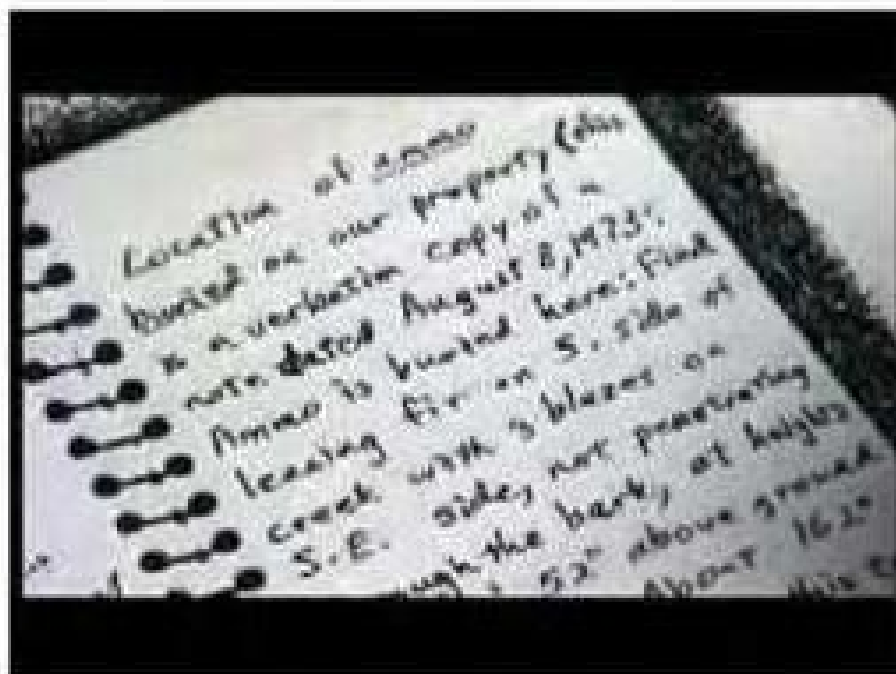 Location of ammo
buried on our property (this
is a verbatim copy of a
note dated August 8, 1973:
Ammo is buried here: Find
leaning fir on S. side of
creek with 3 blazes on
S.E. side, not penetrating
the bark, at heights
52" above ground
About 162°
this